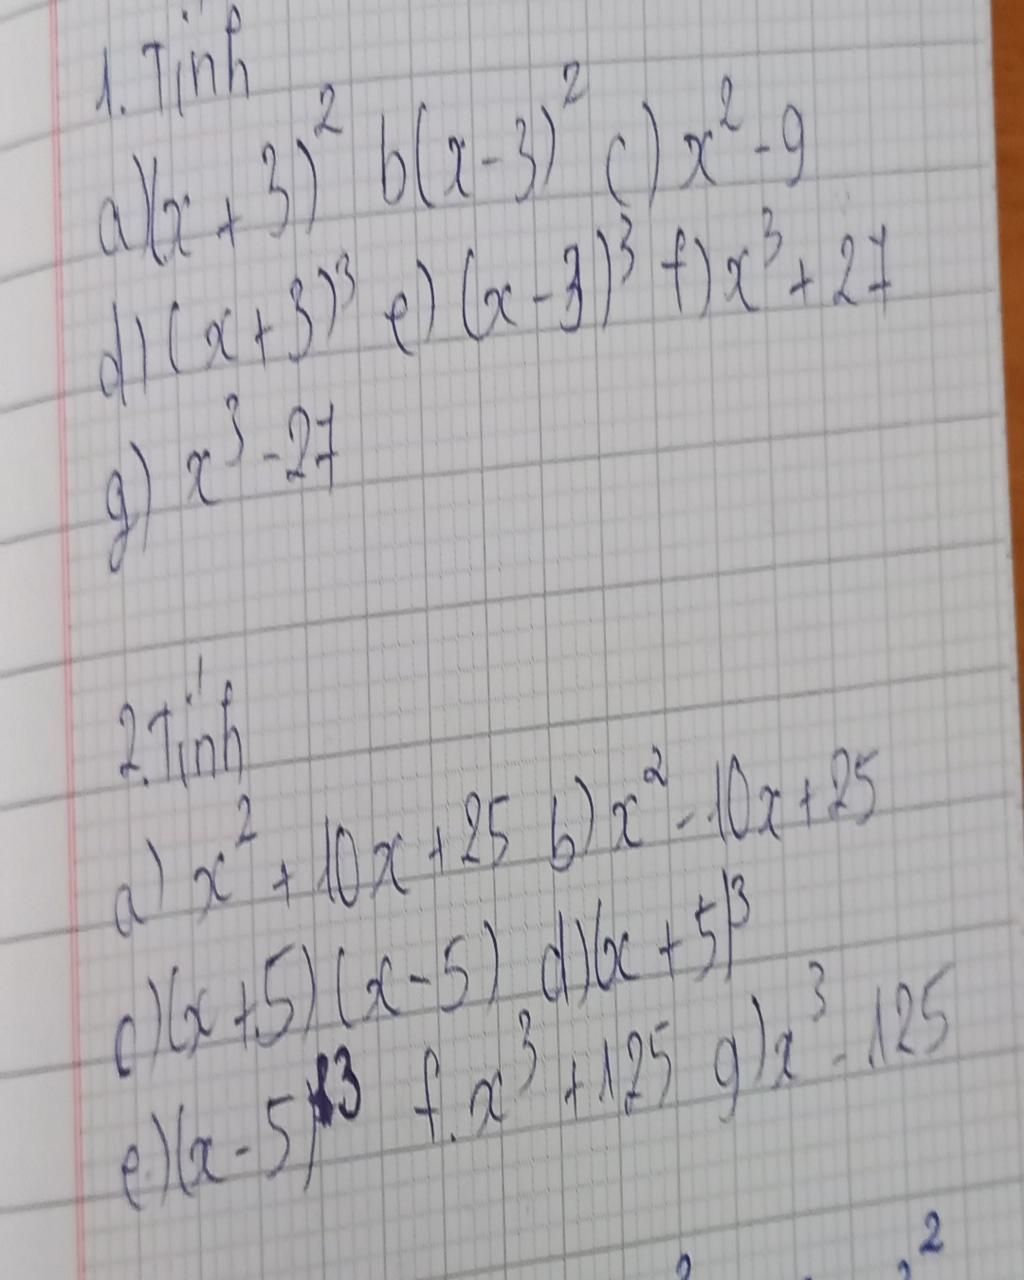 1. Tính
a)(x+3)² b(x-3)² c) x²-9
d) (x+3)³ e) (x-3)³ f) x³+27
g) x³-27
2. Tính
a) x²+10x+25 b) x²-10x+25
c)(x+5)(x-5) d)(x+5)³
e.)(x-5)³ f. x³+125 g) x³-125